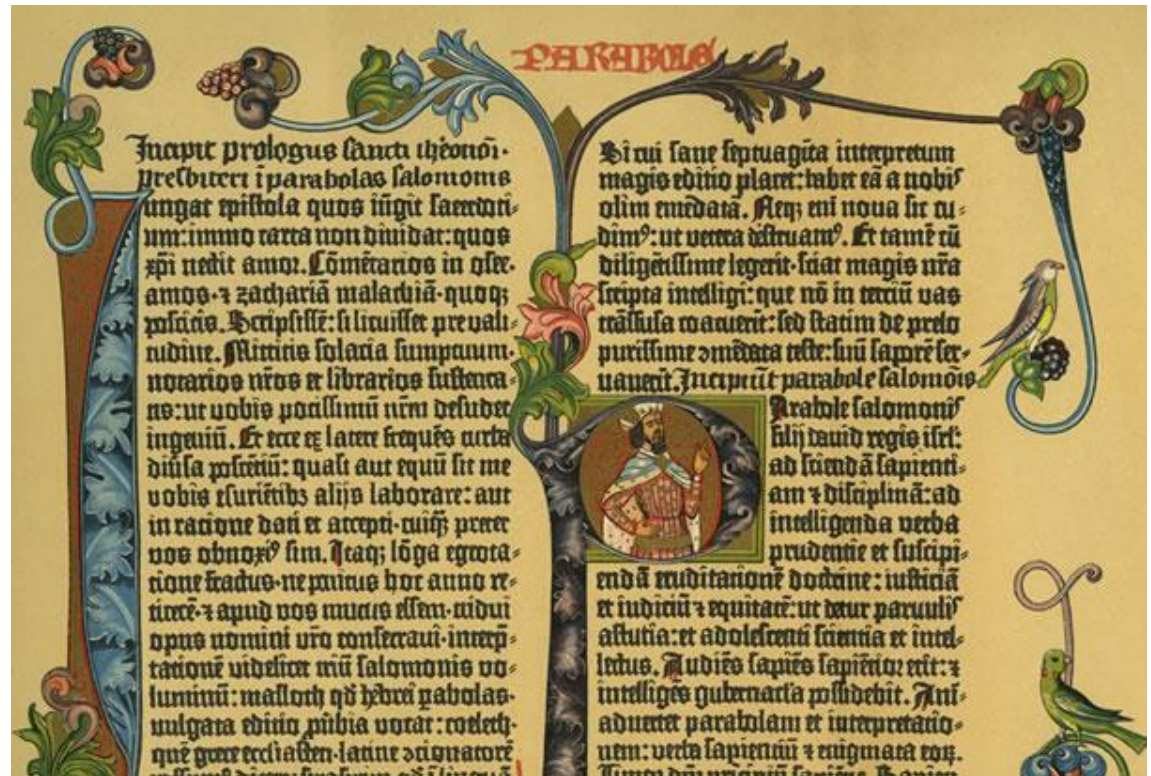 PARABOLE
Incipit prologus sancti iheronimi
presbiteri ī parabolas salomonis
Iungat epistola quos iūgit sacerdoti-
um: immo carta non dividat: quos
xp̄i nectit amor. Cōmētarios in osee.
amos. ⁊ zachariā malachiā. quoqꝫ
poscitis. Scripsissē: si licuisset pre vali-
tudine. Mittitis solacia sumptuum.
notarios nr̄os et librarios sustenta-
tis: ut vobis potissimū nr̄m desudet
ingeniū. Et ecce eꝫ latere frequēs turba
diūsa poscētiū: quasi aut equū sit me
vobis esuriētibꝫ alijs laborare: aut
in racione dati et accepti. cuiqꝫ preter
vos obnoxiꝰ sim. Itaqꝫ lōga egrota-
tione fractus. ne penitus hoc anno re-
ticerē. ⁊ apud vos mutus essem. tridui
opus nomini vr̄o consecravi. interp̄-
tationē videlicet triū salomonis vo-
luminū: masloth qd̄ hebrei ꝑabolas.
vulgata editio ꝓūbia vocat: coeleth.
quē grece ecclīasten. latine ↄcionatorē
Si cui sane septuagīta interpretum
magis editio placet: habet eā a nobis
olim emēdatā. Neqꝫ enī nova sic cu-
dimꝰ: ut vetera destruamꝰ. Et tamē cū
diligētissime legerit. sciat magis nr̄a
scripta intelligi: que nō in terciū vas
trāsfusa coacuerit: sed statim de prelo
purissime ↄmēdata teste: suū saporē ser-
vaverit. Incipiūt parabole salomōis
Parabole salomonis
filij david regis isrl̄:
ad sciendā sapienti-
am ⁊ disciplinā: ad
intelligenda verba
prudentie et suscipi-
endā eruditationē doctrine: iusticiā
et iudiciū ⁊ equitatē: ut detur parvulis
astutia: et adolescenti scientia et intel-
lectus. Audiēs sapiēs sapiētior erit: ⁊
intelligēs gubernacl̄a possidebit. Ani-
advertet parabolam et interpretatio-
nem: verba sapientiū ⁊ enigmata eoꝝ.